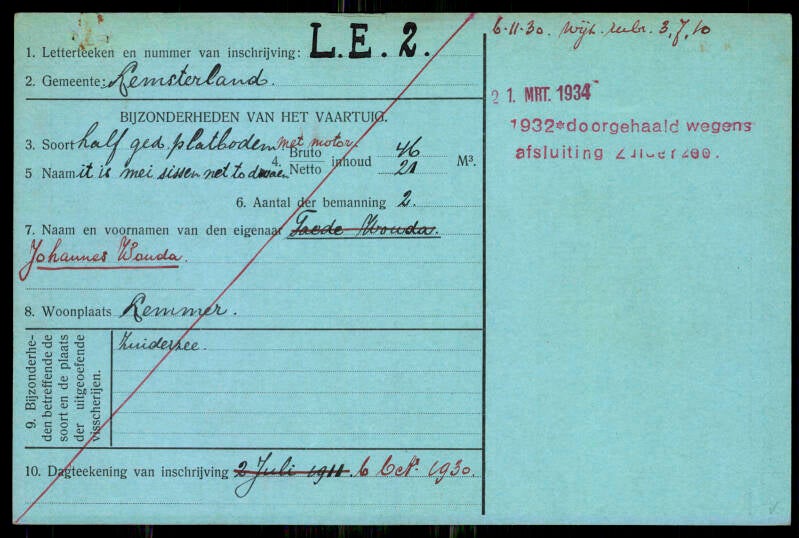 1. Letterteeken en nummer van inschrijving: L.E. 2.
2. Gemeente: Lemsterland.
BIJZONDERHEDEN VAN HET VAARTUIG.
3. Soort half ged. platbodem met motor.
4. Bruto Netto inhoud 46 21 M³.
5 Naam it is mei sissen net to dwaen
6. Aantal der bemanning 2.
7. Naam en voornamen van den eigenaar Taede Wouda.
Johannes Wouda.
8. Woonplaats Lemmer.
9. Bijzonderhe-
den betreffende de
soort en de plaats
der uitgeoefende
visscherijen.
Zuiderzee.
10. Dagteekening van inschrijving 2 Juli 1911. 6 Oct. 1930.
6-11-30. Wijz. rubr. 3, 7, 10
21. MRT. 1934
1932*doorgehaald wegens
afsluiting Zuiderzee.